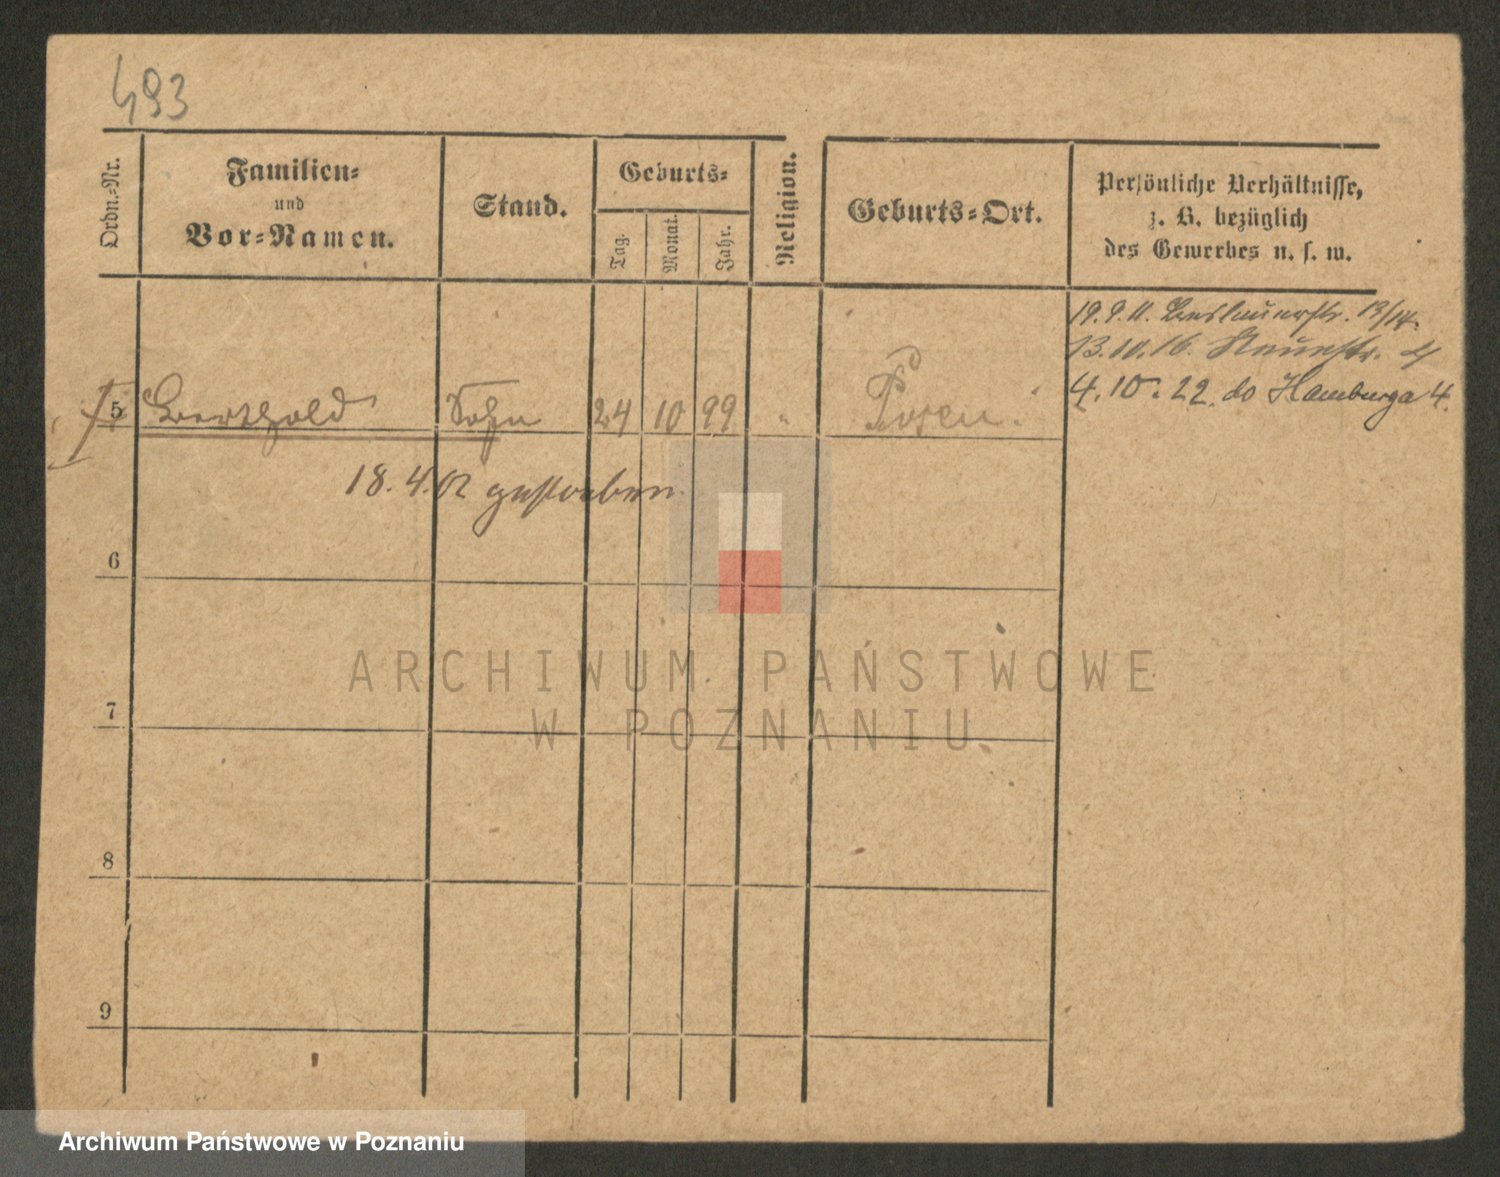 493
Ordn.-Nr.
Familien-
und
Vor-Namen.
Stand.
Geburts-
Tag.
Monat.
Jahr.
Religion.
Geburts-Ort.
Persönliche Verhältnisse,
z. B. bezüglich
des Gewerbes u. s. w.
19.9.11. Breslauerstr. 13/14.
13.10.16. Neuestr. 4
4.10.22. do Hamburga 4.
5 Berthold Sohn 24 10 99 " Posen.
18.4.02 gestorben.
6
7
8
9
ARCHIWUM PAŃSTWOWE
W POZNANIU
Archiwum Państwowe w Poznaniu